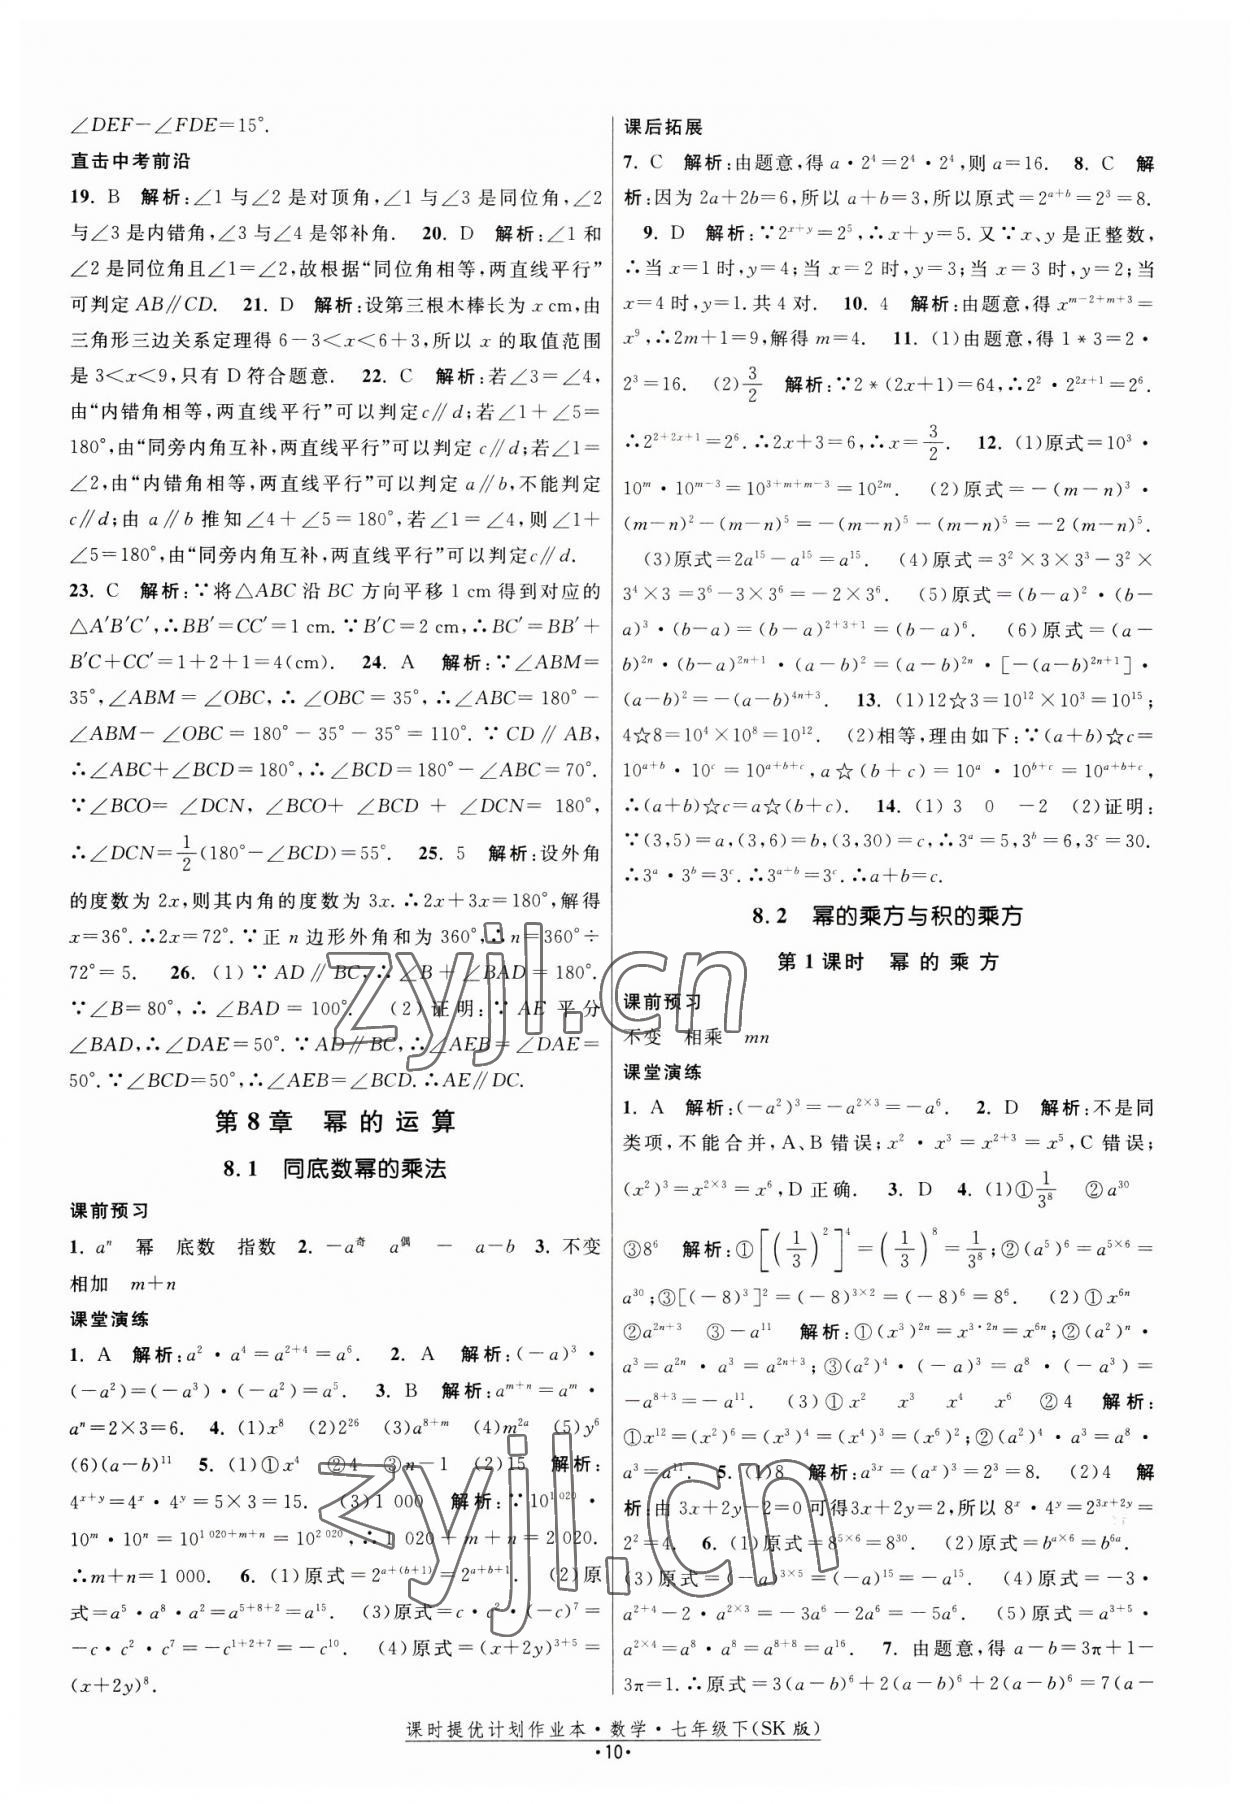 ∠DEF－∠FDE＝15°.
直击中考前沿
19. B 解析:∠1与∠2是对顶角,∠1与∠3是同位角,∠2
与∠3是内错角,∠3与∠4是邻补角. 20. D 解析:∠1和
∠2是同位角且∠1＝∠2,故根据“同位角相等,两直线平行”
可判定AB∥CD. 21. D 解析:设第三根木棒长为x cm,由
三角形三边关系定理得6－3＜x＜6＋3,所以x的取值范围
是3＜x＜9,只有D符合题意. 22. C 解析:若∠3＝∠4,
由“内错角相等,两直线平行”可以判定c∥d;若∠1＋∠5＝
180°,由“同旁内角互补,两直线平行”可以判定c∥d;若∠1＝
∠2,由“内错角相等,两直线平行”可以判定a∥b,不能判定
c∥d;由a∥b推知∠4＋∠5＝180°,若∠1＝∠4,则∠1＋
∠5＝180°,由“同旁内角互补,两直线平行”可以判定c∥d.
23. C 解析:∵将△ABC沿BC方向平移1 cm得到对应的
△A′B′C′,∴BB′＝CC′＝1 cm.∵B′C＝2 cm,∴BC′＝BB′＋
B′C＋CC′＝1＋2＋1＝4(cm). 24. A 解析:∵∠ABM＝
35°,∠ABM＝∠OBC,∴∠OBC＝35°,∴∠ABC＝180°－
∠ABM－∠OBC＝180°－35°－35°＝110°.∵CD∥AB,
∴∠ABC＋∠BCD＝180°,∴∠BCD＝180°－∠ABC＝70°.
∵∠BCO＝∠DCN,∠BCO＋∠BCD＋∠DCN＝180°,
∴∠DCN＝1/2(180°－∠BCD)＝55°. 25. 5 解析:设外角
的度数为2x,则其内角的度数为3x.∴2x＋3x＝180°,解得
x＝36°.∴2x＝72°.∵正n边形外角和为360°,∴n＝360°÷
72°＝5. 26. (1)∵AD∥BC,∴∠B＋∠BAD＝180°.
∵∠B＝80°,∴∠BAD＝100°. (2)证明:∵AE平分
∠BAD,∴∠DAE＝50°.∵AD∥BC,∴∠AEB＝∠DAE＝
50°.∵∠BCD＝50°,∴∠AEB＝∠BCD.∴AE∥DC.
第8章 幂的运算
8.1 同底数幂的乘法
课前预习
1. aⁿ 幂 底数 指数 2. －a^奇 a^偶 － a－b 3. 不变
相加 m＋n
课堂演练
1. A 解析:a²·a⁴＝a²⁺⁴＝a⁶. 2. A 解析:(－a)³·
(－a²)＝(－a³)·(－a²)＝a⁵. 3. B 解析:a^(m＋n)＝a^m·
a^n＝2×3＝6. 4. (1)x⁸ (2)2²⁶ (3)a^(8＋m) (4)m^(2a) (5)y⁶
(6)(a－b)¹¹ 5. (1)①x⁴ ②4 ③n－1 (2)15 解析:
4^(x＋y)＝4^x·4^y＝5×3＝15. (3)1 000 解析:∵10^(1 020)·
10^m·10^n＝10^(1 020＋m＋n)＝10^(2 020),∴1 020＋m＋n＝2 020.
∴m＋n＝1 000. 6. (1)原式＝2^(a＋(b＋1))＝2^(a＋b＋1). (2)原
式＝a⁵·a⁸·a²＝a⁵⁺⁸⁺²＝a¹⁵. (3)原式＝c·c²·(－c)⁷＝
－c·c²·c⁷＝－c¹⁺²⁺⁷＝－c¹⁰. (4)原式＝(x＋2y)³⁺⁵＝
(x＋2y)⁸.
课后拓展
7. C 解析:由题意,得a·2⁴＝2⁴·2⁴,则a＝16. 8. C 解
析:因为2a＋2b＝6,所以a＋b＝3,所以原式＝2^(a＋b)＝2³＝8.
9. D 解析:∵2^(x＋y)＝2⁵,∴x＋y＝5.又∵x、y是正整数,
∴当x＝1时,y＝4;当x＝2时,y＝3;当x＝3时,y＝2;当
x＝4时,y＝1.共4对. 10. 4 解析:由题意,得x^(m－2＋m＋3)＝
x⁹,∴2m＋1＝9,解得m＝4. 11. (1)由题意,得1*3＝2·
2³＝16. (2)3/2 解析:∵2*(2x＋1)＝64,∴2²·2^(2x＋1)＝2⁶.
∴2^(2＋2x＋1)＝2⁶.∴2x＋3＝6,∴x＝3/2. 12. (1)原式＝10³·
10^m·10^(m－3)＝10^(3＋m＋m－3)＝10^(2m). (2)原式＝－(m－n)³·
(m－n)²－(m－n)⁵＝－(m－n)⁵－(m－n)⁵＝－2(m－n)⁵.
(3)原式＝2a¹⁵－a¹⁵＝a¹⁵. (4)原式＝3²×3×3³－3×
3⁴×3＝3⁶－3×3⁶＝－2×3⁶. (5)原式＝(b－a)²·(b－
a)³·(b－a)＝(b－a)²⁺³⁺¹＝(b－a)⁶. (6)原式＝(a－
b)^(2n)·(b－a)^(2n＋1)·(a－b)²＝(a－b)^(2n)·[－(a－b)^(2n＋1)]·
(a－b)²＝－(a－b)^(4n＋3). 13. (1)12☆3＝10¹²×10³＝10¹⁵;
4☆8＝10⁴×10⁸＝10¹². (2)相等,理由如下:∵(a＋b)☆c＝
10^(a＋b)·10^c＝10^(a＋b＋c),a☆(b＋c)＝10^a·10^(b＋c)＝10^(a＋b＋c),
∴(a＋b)☆c＝a☆(b＋c). 14. (1) 3 0 －2 (2)证明:
∵(3,5)＝a,(3,6)＝b,(3,30)＝c,∴3^a＝5,3^b＝6,3^c＝30.
∴3^a·3^b＝3^c.∴3^(a＋b)＝3^c.∴a＋b＝c.
8.2 幂的乘方与积的乘方
第1课时 幂的乘方
课前预习
不变 相乘 mn
课堂演练
1. A 解析:(－a²)³＝－a²ˣ³＝－a⁶. 2. D 解析:不是同
类项,不能合并,A、B错误;x²·x³＝x²⁺³＝x⁵,C错误;
(x²)³＝x²ˣ³＝x⁶,D正确. 3. D 4. (1)①1/3⁸ ②a³⁰
③8⁶ 解析:①[(1/3)²]⁴＝(1/3)⁸＝1/3⁸;②(a⁵)⁶＝a⁵ˣ⁶＝
a³⁰;③[(－8)³]²＝(－8)³ˣ²＝(－8)⁶＝8⁶. (2)①x^(6n)
②a^(2n＋3) ③－a¹¹ 解析:①(x³)^(2n)＝x^(3·2n)＝x^(6n);②(a²)^n·
a³＝a^(2n)·a³＝a^(2n＋3);③(a²)⁴·(－a)³＝a⁸·(－a³)＝
－a⁸⁺³＝－a¹¹. (3)①x² x³ x⁴ x⁶ ②4 解析:
①x¹²＝(x²)⁶＝(x³)⁴＝(x⁴)³＝(x⁶)²;②(a²)⁴·a³＝a⁸·
a³＝a¹¹. 5. (1)8 解析:a^(3x)＝(a^x)³＝2³＝8. (2)4 解
析:由3x＋2y－2＝0可得3x＋2y＝2,所以8^x·4^y＝2^(3x＋2y)＝
2²＝4. 6. (1)原式＝8⁵ˣ⁶＝8³⁰. (2)原式＝b^(a×6)＝b^(6a).
(3)原式＝(－a)³ˣ⁵＝(－a)¹⁵＝－a¹⁵. (4)原式＝－3·
a²⁺⁴－2·a²ˣ³＝－3a⁶－2a⁶＝－5a⁶. (5)原式＝a³⁺⁵·
a²ˣ⁴＝a⁸·a⁸＝a⁸⁺⁸＝a¹⁶. 7. 由题意,得a－b＝3π＋1－
3π＝1.∴原式＝3(a－b)⁶＋2(a－b)⁶＋2(a－b)⁶＝7(a－
课时提优计划作业本·数学·七年级下(SK版)
·10·
zyjl.cn
zyjl.cn